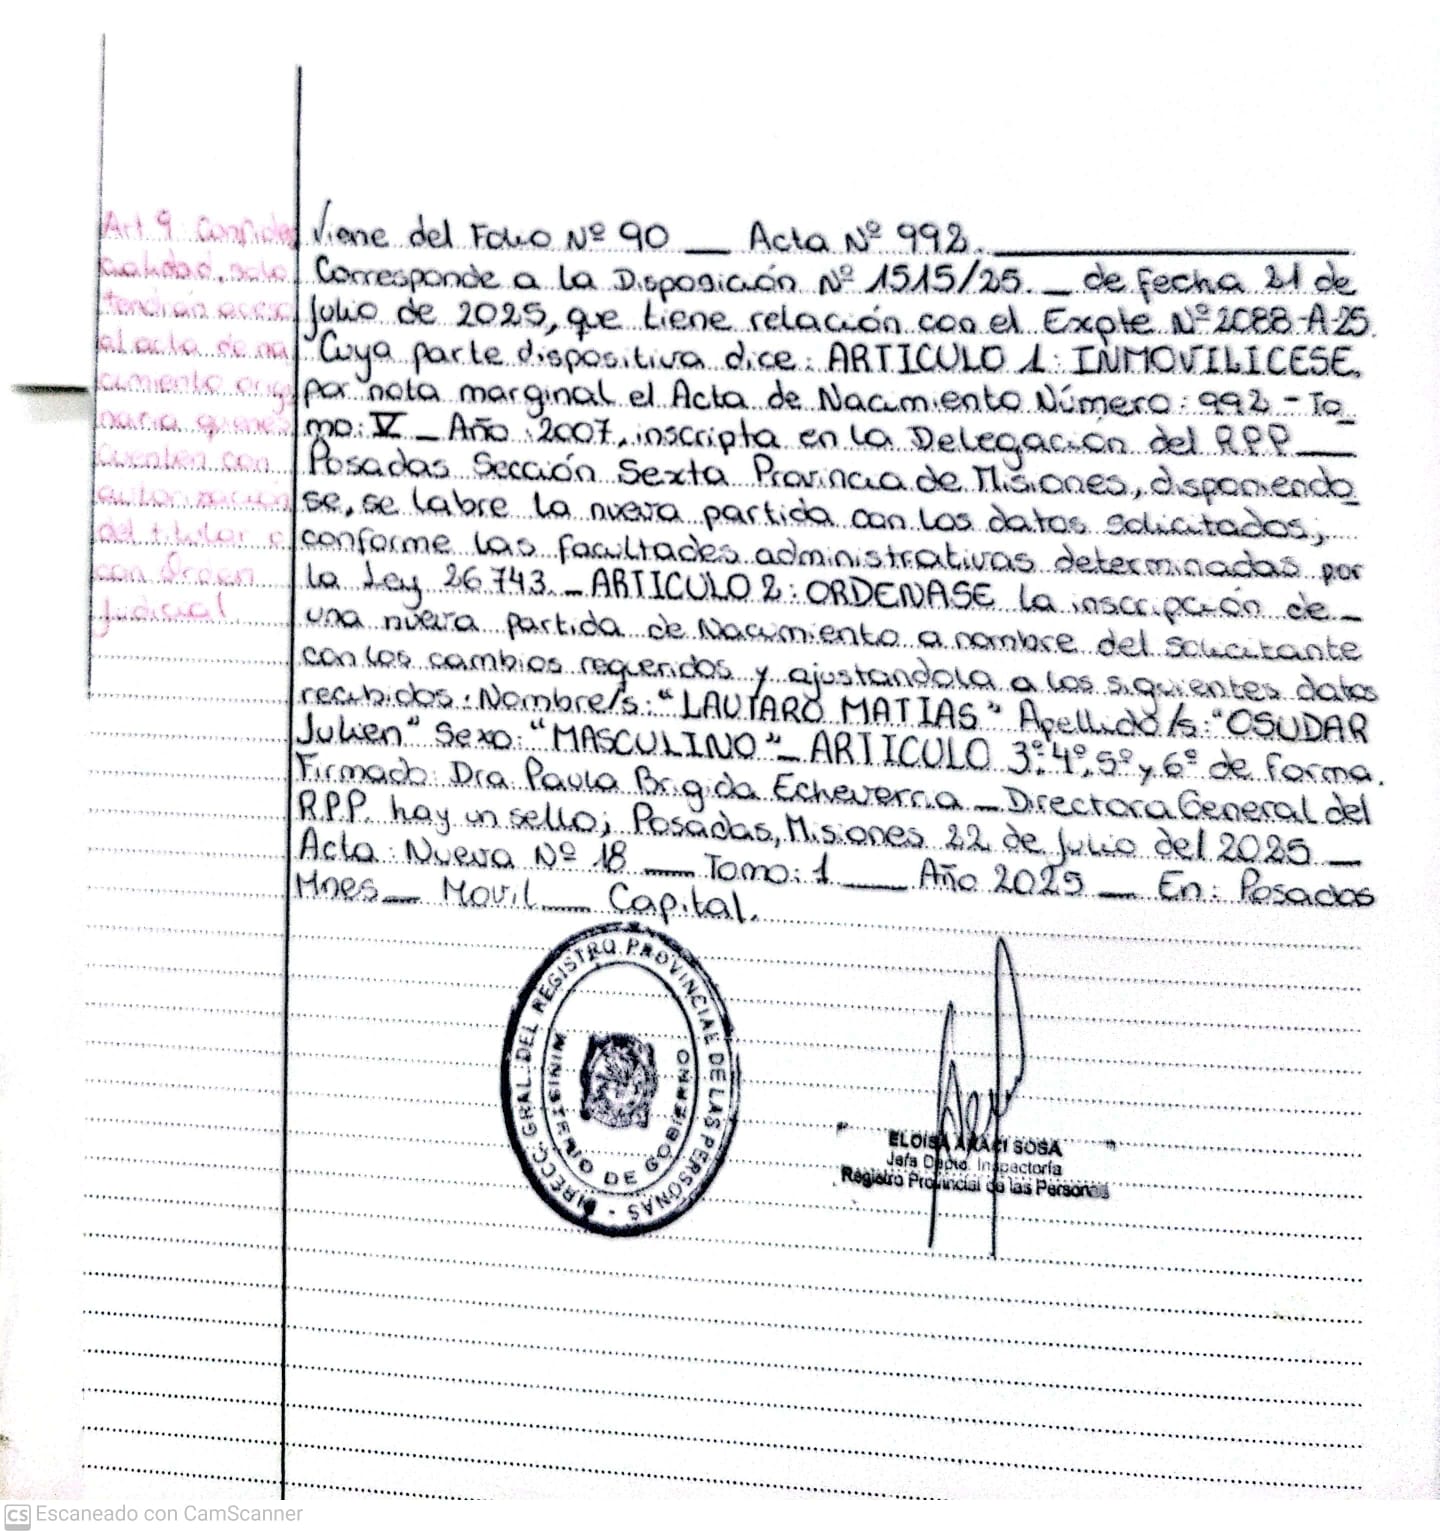 Art 9 Confiden
cialidad, solo
tendrán acceso
al acta de na
cimiento origi
naria quienes
cuenten con
autorización
del titular o
con Orden
Judicial
Viene del Folio Nº 90 __ Acta Nº 992.
Corresponde a la Disposición Nº 1515/25._ de fecha 21 de
Julio de 2025, que tiene relación con el Expte Nº 2088-A-25.
Cuya parte dispositiva dice: ARTICULO 1: INMOVILICESE,
por nota marginal el Acta de Nacimiento Número: 992 - To_
mo: V _ Año: 2007, inscripta en la Delegación del RPP __
Posadas Sección Sexta Provincia de Misiones, disponiendo
se, se labre la nueva partida con los datos solicitados,
conforme las facultades administrativas determinadas por
la Ley 26.743._ ARTICULO 2: ORDENASE la inscripción de_
una nueva partida de Nacimiento a nombre del solicitante
con los cambios requeridos y ajustandola a los siguientes datos
recibidos: Nombre/s: "LAUTARO MATIAS" Apellido/s: "OSUDAR
Julien" Sexo: "MASCULINO"_ ARTICULO 3º, 4º, 5º y 6º de forma.
Firmado: Dra. Paula Brigida Echeverria _ Directora General del
R.P.P. hay un sello; Posadas, Misiones 22 de Julio del 2025 _
Acta: Nueva Nº 18 __ Tomo: 1 __ Año 2025 _ En: Posadas
Mnes _ Movil __ Capital.
DIRECC. GRAL. DEL REGISTRO PROVINCIAL DE LAS PERSONAS -
MINISTERIO DE GOBIERNO
ELOISA ARACI SOSA
Jefa Dpto. Inspectoría
Registro Provincial de las Personas
CS Escaneado con CamScanner